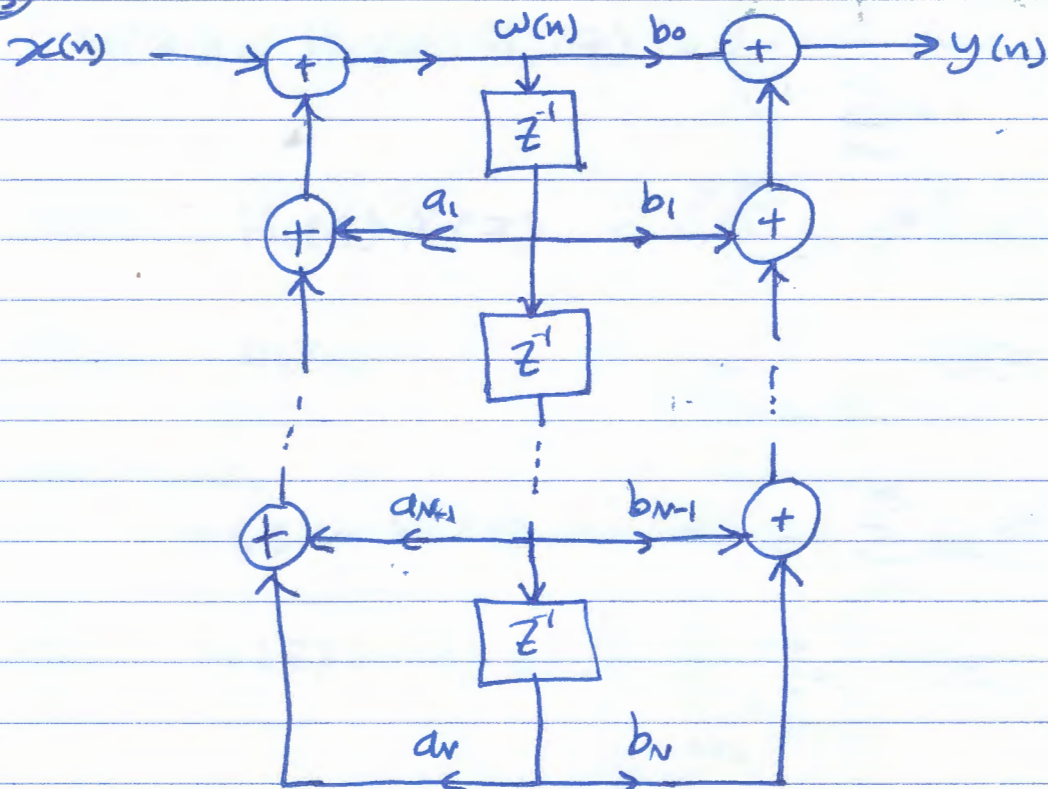 x(n) + ω(n) b₀ + y(n)
Z⁻¹
+ a₁ b₁ +
Z⁻¹
+ aN+1 bN-1 +
Z⁻¹
aN bN